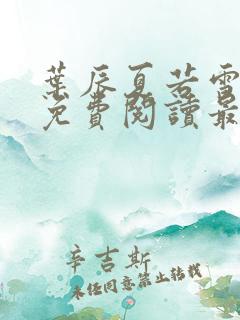 葉辰夏若雪
免費閱讀最
辛吉斯
未经同意禁止转载